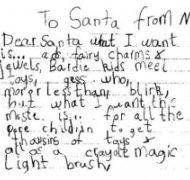 To Santa from N
Dear Santa what I want
is... a ds, fairy charms &
jewels, Bardie kids meet
toys, gess who,
more or less than, blink,
but what I want the
moste is... for all the
pore children to get
thousins of toys &
as a crayola magic
light brush